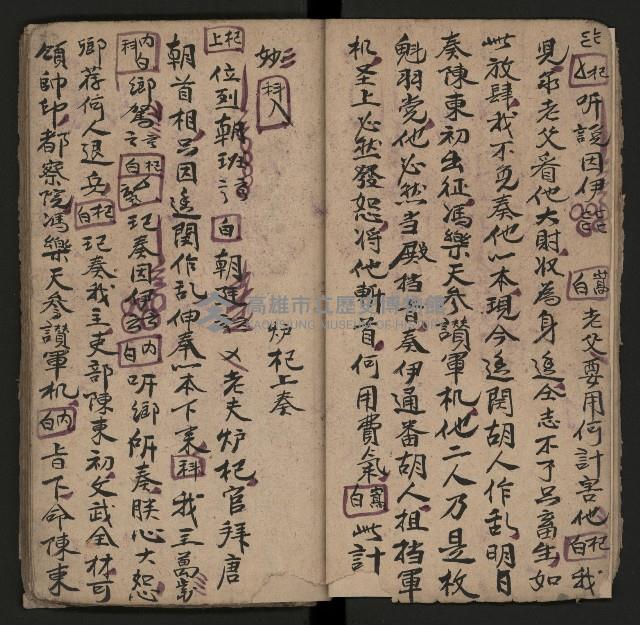 听說因伊 老父要用何計害他 我
見弟老父看他大財收為身 不 志不了只畜生如
此放肆我不免奏他一本現今邊関胡人作乱明日
奏陳東初出征馮樂天参讃軍机他二人乃是枚
魁羽党他必然当殿挡旨奏伊通番胡人担挡軍
机圣上必然發怒将他斬首何用費氣 嵩白 此計
妙 科入
炉杞上奏
杞上 位列朝班 白 朝 老夫炉杞官拜唐
朝首相只因邊関作乱伸奉一本下来 科 我主萬歲
内白 卿 杞白 杞奏因伊 内白 听卿所奏朕心大怒
卿荐何人退兵 杞白 杞奏我主吏部陳東初文武全材可
領帥印都察院馮樂天参讃軍机 内白 旨下命陳東
高雄市立歷史博物館
KAOHSIUNG MUSEUM OF HISTORY